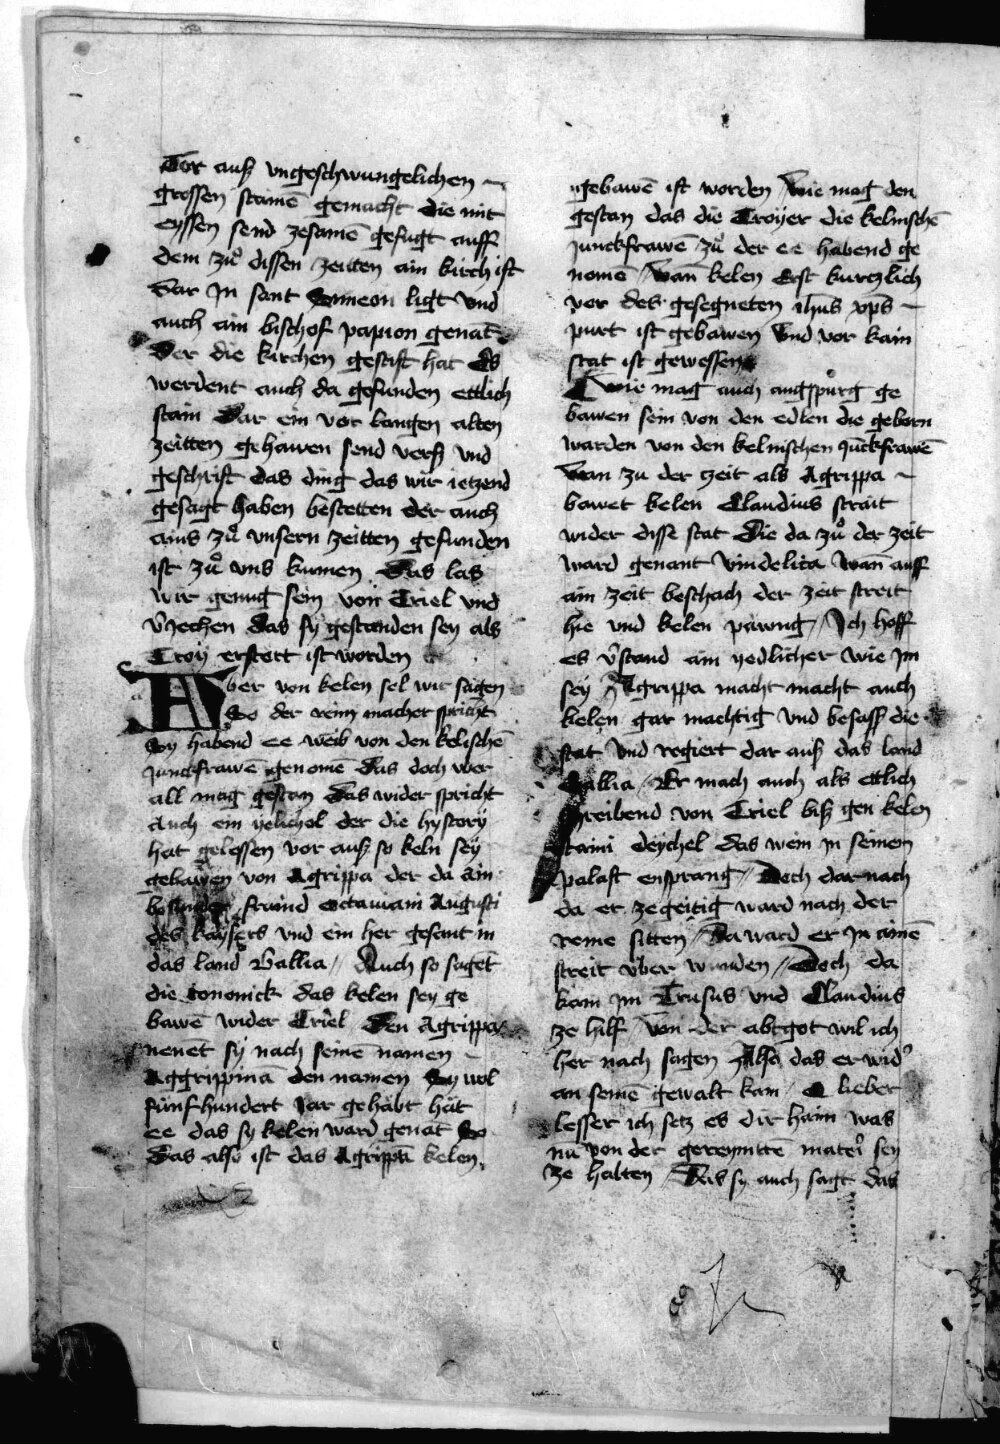 Tor auß vngeschwungelichen
grossen stainē gemacht die mit
eyssen send zesamē gefugt auff
dem zů dissen zeitten ain kirch ist
Dar Jn sant Simeon ligt Vnd
auch ain bischof papion genāt
Der die kirchen gestift hat Es
werdent auch da gefunden ettlich
stain Dar ein vor langen alten
zeitten gehawen send verß vnd
geschrift das ding das wir ietzend
gesagt haben bestetten der auch
ains zů vnsern zeitten gefunden
ist zů vns kumen Das las
wir genug sein von Triel vnd
das sy gestanden sey als
Troy erstert ist worden
Aber von kelen sol wir sagen
So der reim macher spricht
Sy habend ee weib von den kelischē
junckfrawē genomē Das doch vber
all mag gestan Das wider spricht
Auch ein yelichol der die hystory
hat gelessen vor auß so keln sey
gebawen von Agrippa der da ain
fraind octauiani Augusti
des kaysers vnd ein her gesant in
das land Gallia // Auch so saget
die conomick das kelen sey ge
bawē wider Triel Den Agrippa
nenēt sy nach seinē namen
Aggrippinā den namen Sy wol
funfhundert Jar gehābt hāt
ee das sy kelen ward genāt So
Das also ist das Agrippā kelen
gebawē ist worden / Wie mag den
gestan das die Troyer die kelnischē
junckfrawē zů der ee habend ge
nomē / Wan kelen Erst kurtzlich
vor des gesegneten ihūs xp̄s
purt ist gebawen Vnd vor kain
stat ist gewessen
Wie mag auch augspurg ge
bawen sein von den edlen die geborn
warden von den kelnischen Junckfrawē
Wan zu der zeit als Agrippa
bawet kelen Claudius strait
wider disse stat Die da zů der zeit
ward genant vindelica Wan auff
ain zeit beschach der zeit streit
hie vnd kelen pawng / Jch hoff
es v̄stand ain yedlicher wie Jm
sey / Agrippa macht macht auch
kelen gar machtig Vnd besaß die
stat Vnd regiert dar auß das land
Gallia / Er mach auch als ettlich
schreibend von Triel biß gen kelen
staini deychel das wein Jn seinem
palast ensprang // Doch dar nach
da er zegeitig ward nach der
reme sitten / Da ward er Jn ainē
streit v̈ber wunden // Doch da
kam Jm Trusus vnd Claudius
ze hilf von der abtgot wil ich
her nach sagen Also das er wid'
an seinē gewalt kam / O lieber
lesser ich setz es dir haim was
nū von der gereymttē materˀ sey
ze halten / Das sy auch sagt das